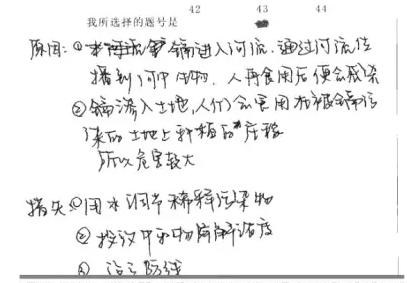 42 43 44
我所选择的题号是
原因:① 镉进入河流,通过河流传
播到河中生物,人再食用后便会感染
②镉渗入土地,人们会食用在被镉污
染的土地上种植的庄稼
所以危害较大
措失:①用水调节稀释污染物
②投议中和物降解浓度
③ 沿 防线